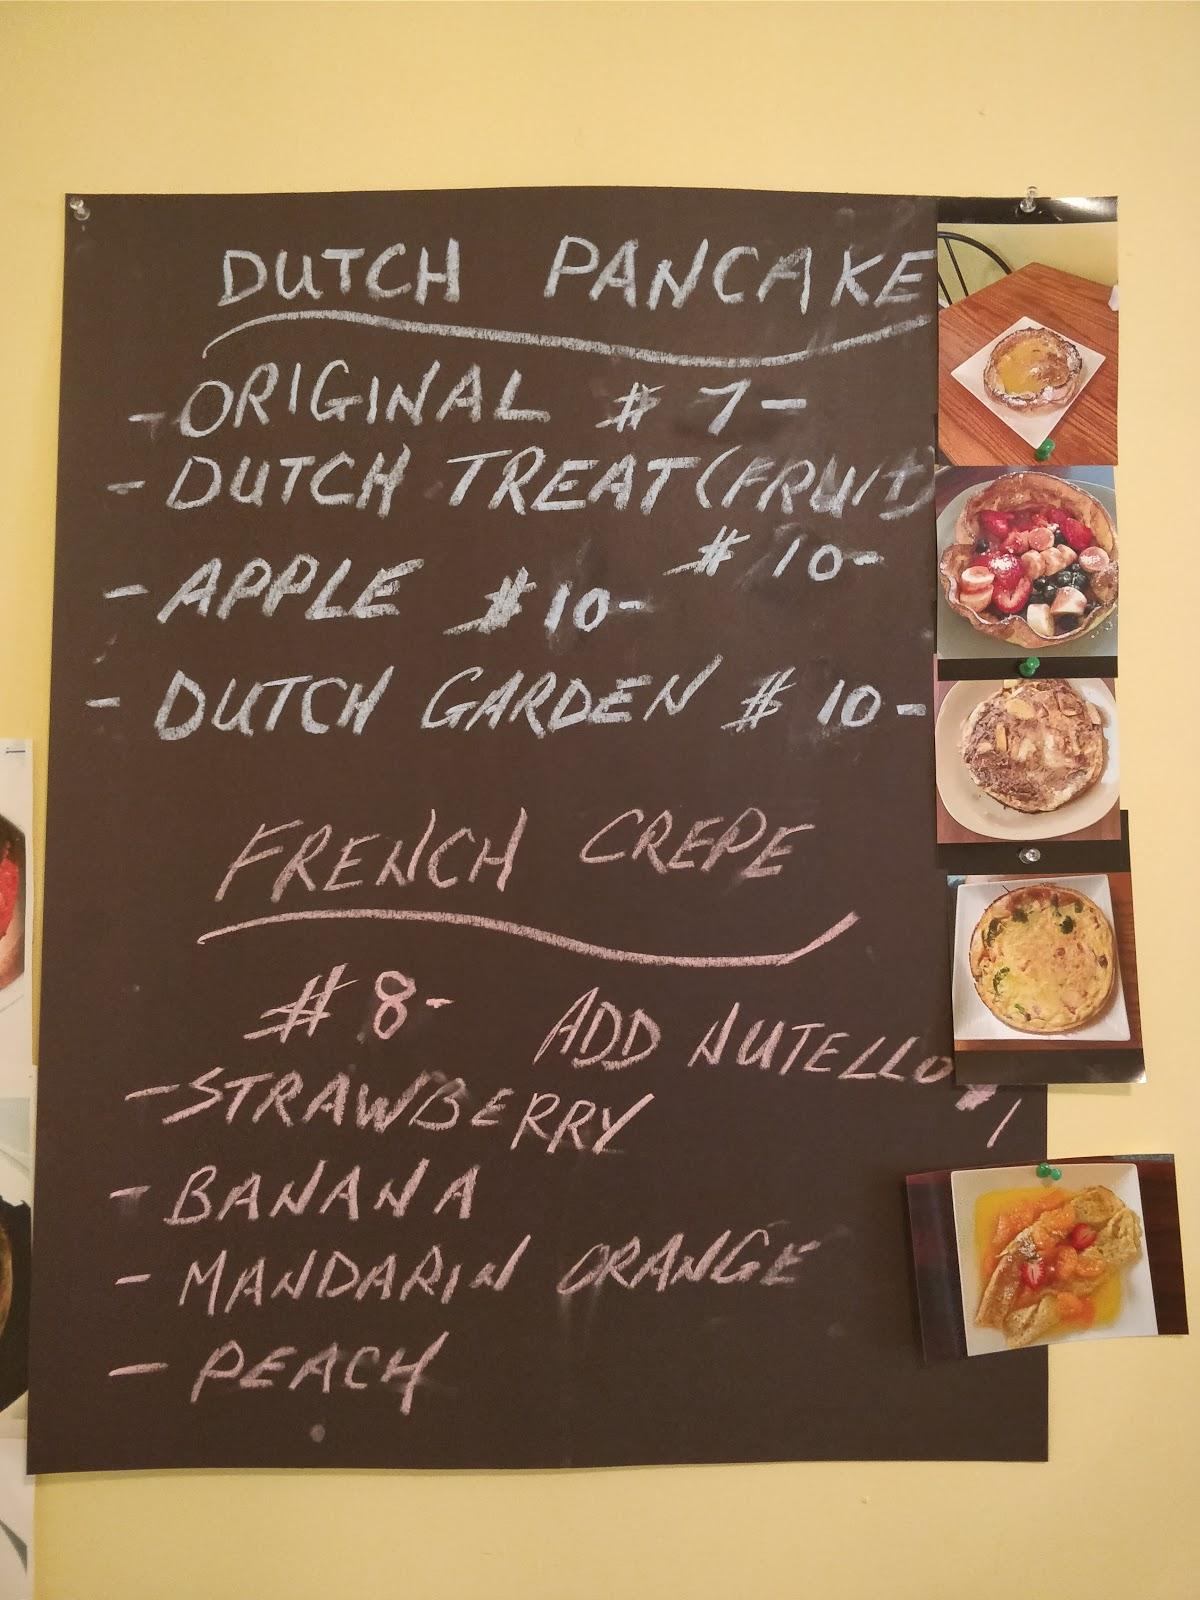 DUTCH PANCAKE
-ORIGINAL $ 7-
-DUTCH TREAT (FRUIT)
$ 10-
-APPLE $10-
-DUTCH GARDEN $ 10-
FRENCH CREPE
$ 8-
ADD NUTELLO
1
-STRAWBERRY
-BANANA
-MANDARIN ORANGE
-PEACH